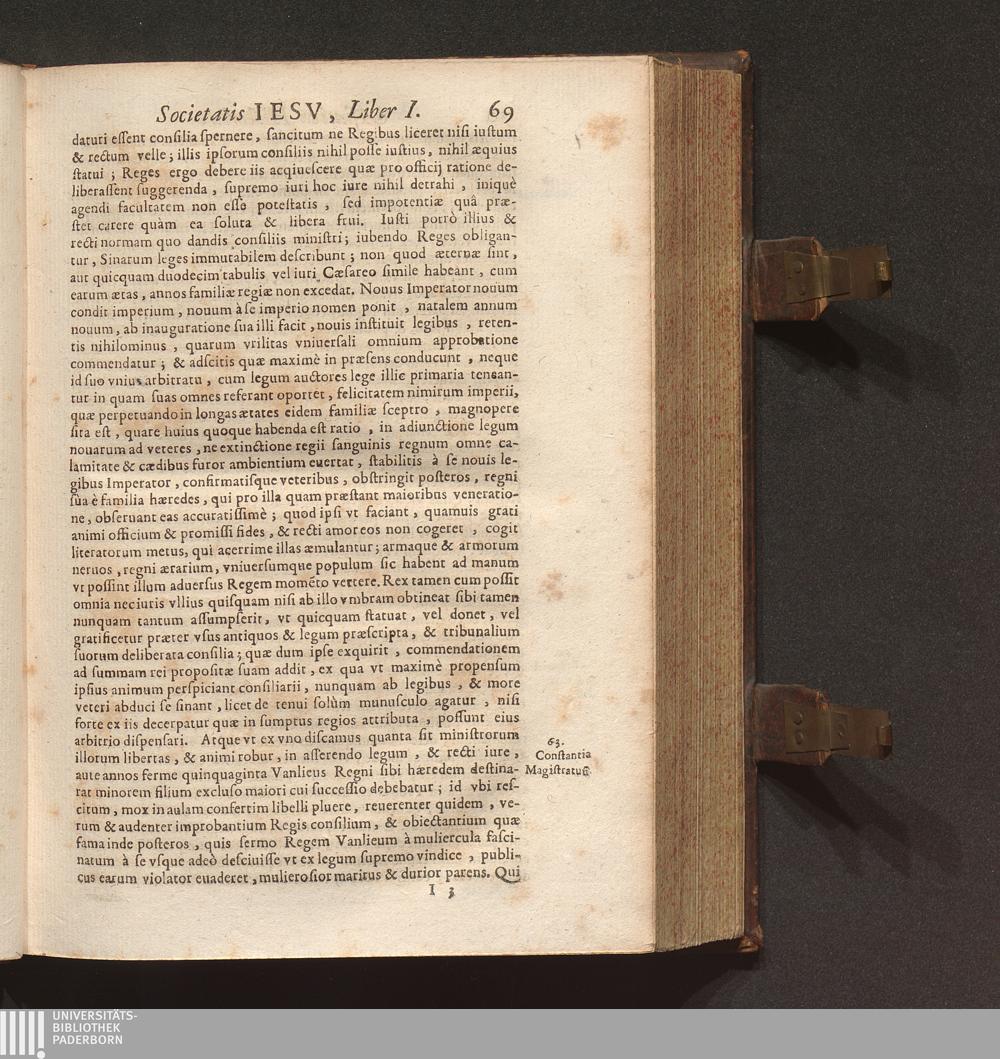 Societatis IESV, Liber I. 69
daturi essent consilia spernere, sancitum ne Regibus liceret nisi iustum
& rectum velle; illis ipsorum consiliis nihil posse iustius, nihil æquius
statui; Reges ergo debere iis acquiescere quæ pro officij ratione de-
liberassent suggerenda, supremo iuri hoc iure nihil detrahi, iniquè
agendi facultatem non esse potestatis, sed impotentiæ quâ præ-
stet carere quàm ea soluta & libera frui. Iusti porrò illius &
recti normam quo dandis consiliis ministri; iubendo Reges obligan-
tur, Sinarum leges immutabilem describunt; non quod æternæ sint,
aut quicquam duodecim tabulis vel iuri Cæsareo simile habeant, cum
earum ætas, annos familiæ regiæ non excedat. Nouus Imperator nouum
condit imperium, nouum à se imperio nomen ponit, natalem annum
nouum, ab inauguratione sua illi facit, nouis instituit legibus, reten-
tis nihilominus, quarum vtilitas vniuersali omnium approbatione
commendatur; & adscitis quæ maximè in præsens conducunt, neque
id suo vnius arbitratu, cum legum auctores lege illic primaria tenean-
tur in quam suas omnes referant oportet, felicitatem nimirum imperii,
quæ perpetuando in longas ætates eidem familiæ sceptro, magnopere
sita est, quare huius quoque habenda est ratio, in adiunctione legum
nouarum ad veteres, ne extinctione regii sanguinis regnum omne ca-
lamitate & cædibus furor ambientium euertat, stabilitis à se nouis le-
gibus Imperator, confirmatisque veteribus, obstringit posteros, regni
sua è familia hæredes, qui pro illa quam præstant maioribus veneratio-
ne, obseruant eas accuratissimè; quod ipsi vt faciant, quamuis grati
animi officium & promissi fides, & recti amor eos non cogeret, cogit
literatorum metus, qui acerrime illas æmulantur; armaque & armorum
neruos, regni ærarium, vniuersumque populum sic habent ad manum
vt possint illum aduersus Regem momẽto vertere. Rex tamen cum possit
omnia nec iuris vllius quisquam nisi ab illo vmbram obtineat sibi tamen
nunquam tantum assumpserit, vt quicquam statuat, vel donet, vel
gratificetur præter vsus antiquos & legum præscripta, & tribunalium
suorum deliberata consilia; quæ dum ipse exquirit, commendationem
ad summam rei propositæ suam addit, ex qua vt maximè propensum
ipsius animum perspiciant consiliarii, nunquam ab legibus, & more
veteri abduci se sinant, licet de tenui solùm munusculo agatur, nisi
forte ex iis decerpatur quæ in sumptus regios attributa, possunt eius
arbitrio dispensari. Atque vt ex vno discamus quanta sit ministrorum
illorum libertas, & animi robur, in asserendo legum, & recti iure,
aute annos ferme quinquaginta Vanlieus Regni sibi hæredem destina-
rat minorem filium excluso maiori cui successio debebatur; id vbi res-
citum, mox in aulam confertim libelli pluere, reuerenter quidem, ve-
rum & audenter improbantium Regis consilium, & obiectantium quæ
fama inde posteros, quis sermo Regem Vanlieum à muliercula fasci-
natum à se vsque adeò desciuisse vt ex legum supremo vindice, publi-
cus earum violator euaderet, mulierosior maritus & durior parens. Qui
I 3
63.
Constantia
Magistratus.
UNIVERSITÄTS-
BIBLIOTHEK
PADERBORN